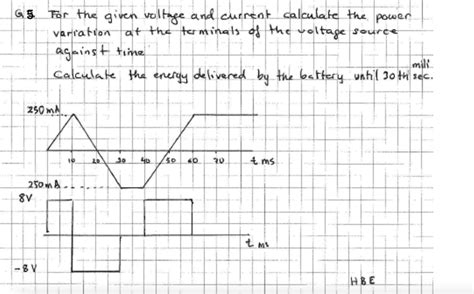 Q5 For the given voltage and current calculate the power
variation at the terminals of the voltage source
against time
Calculate the energy delivered by the battery until 30th milli sec.
250 mA
10 20 30 40 50 60 70 t ms
250 mA
8V
t ms
-8V
HBE